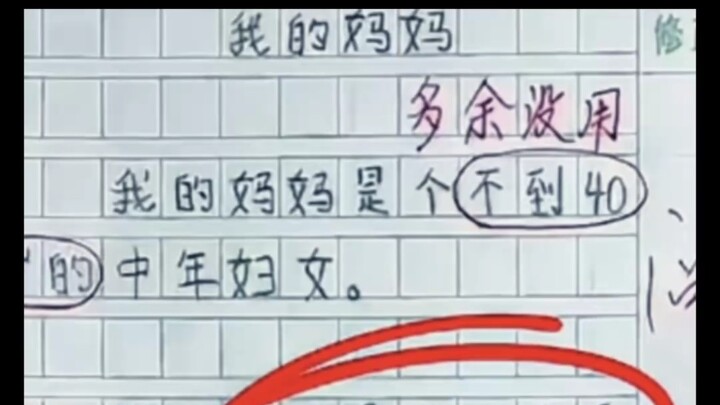 我的妈妈
修
多余没用
我的妈妈是个不到40
的中年妇女。